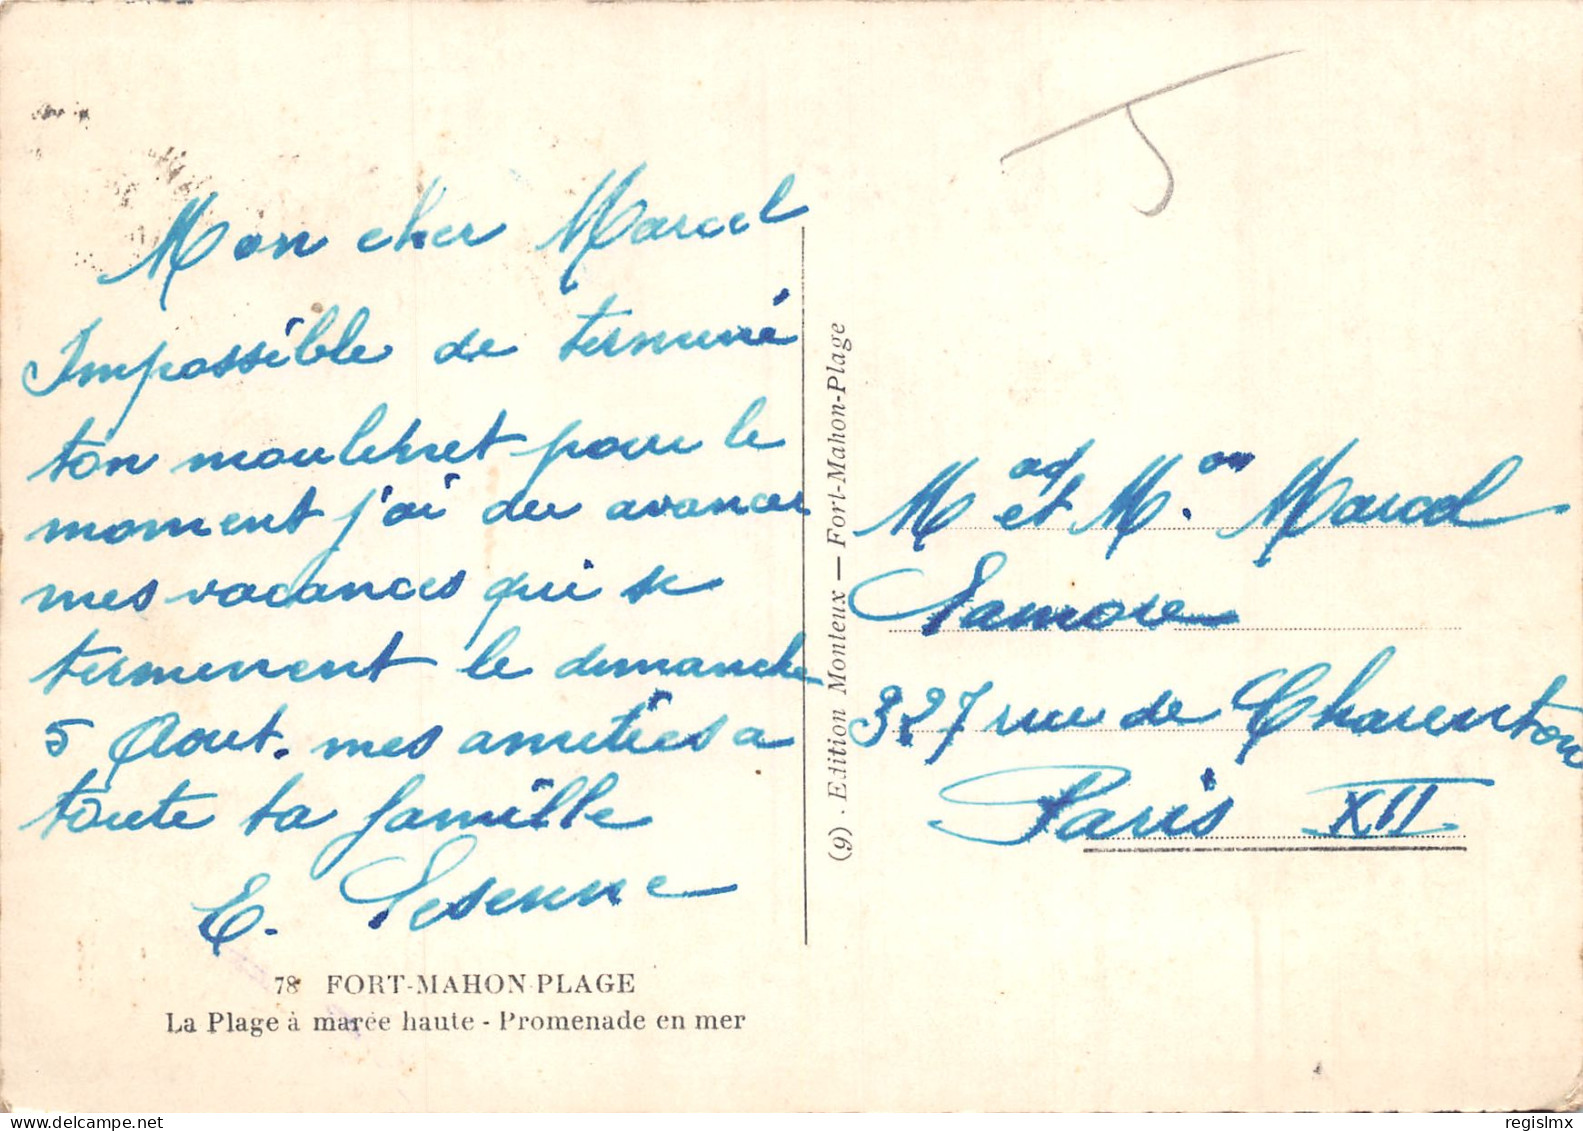 Mon cher Marcel
Impossible de terminé
ton moulinet pour le
moment j'ai du avancer
mes vacances qui se
terminent le dimanche
5 Aout. mes amitiés a
toute ta famille
E. Lesenne
78 FORT-MAHON-PLAGE
La Plage à marée haute - Promenade en mer
(9) - Edition Monteux — Fort-Mahon-Plage
Mad et M.on Marcel
327 rue de Charenton
Paris XII
www.delcampe.net
regislmx